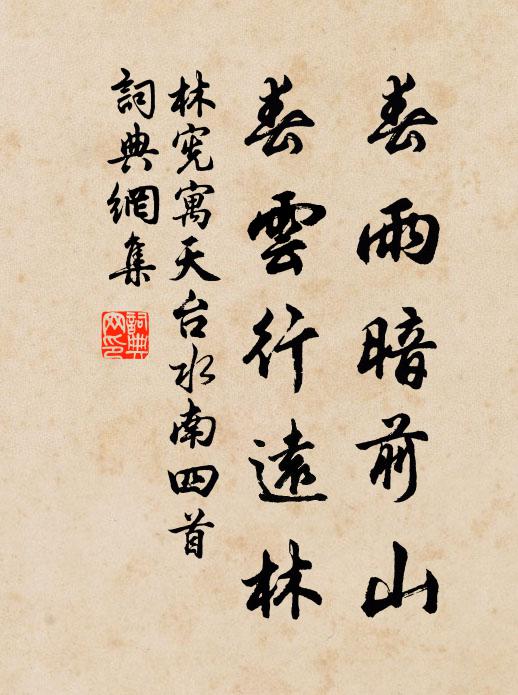 春雨暗前山
春雲行遠林
林宪寓天台水南四首
詞典網集
詞典網印